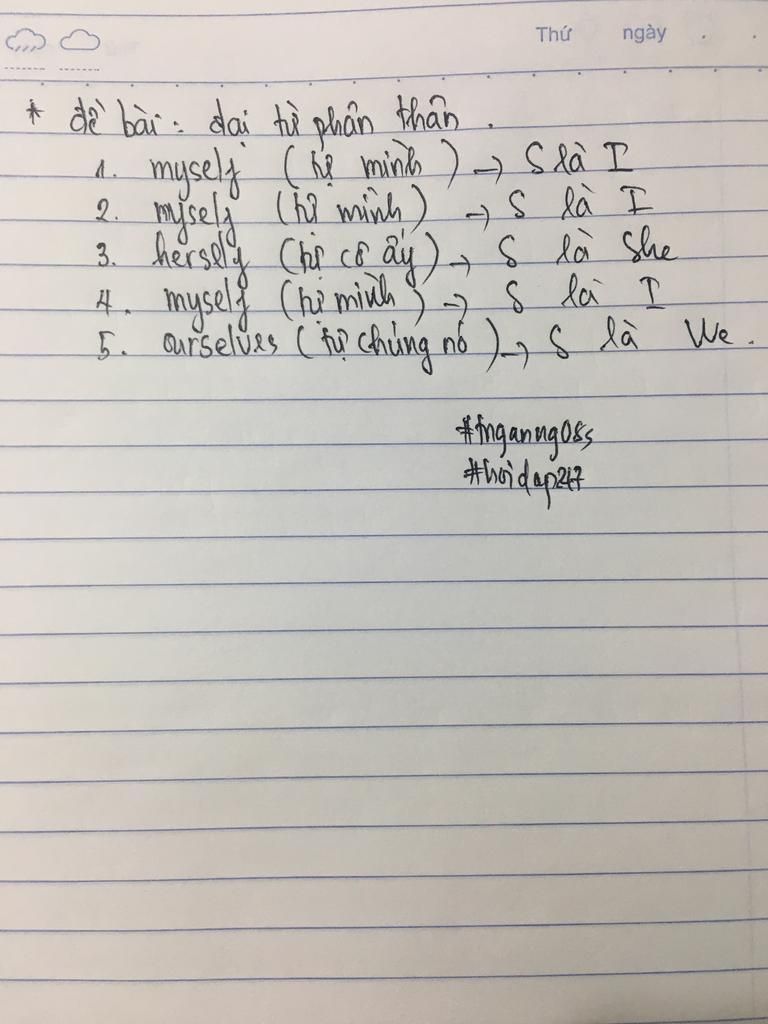 Thứ ngày . .
* đề bài : đại từ phân thân .
1. myself (tự mình) → S là I
2. myself (tự mình) → S là I
3. hersely (tự cô ấy) → S là She
4. myself (tự mình) → S là I
5. ourselves (tự chúng nó) → S là We .
#hoidap247